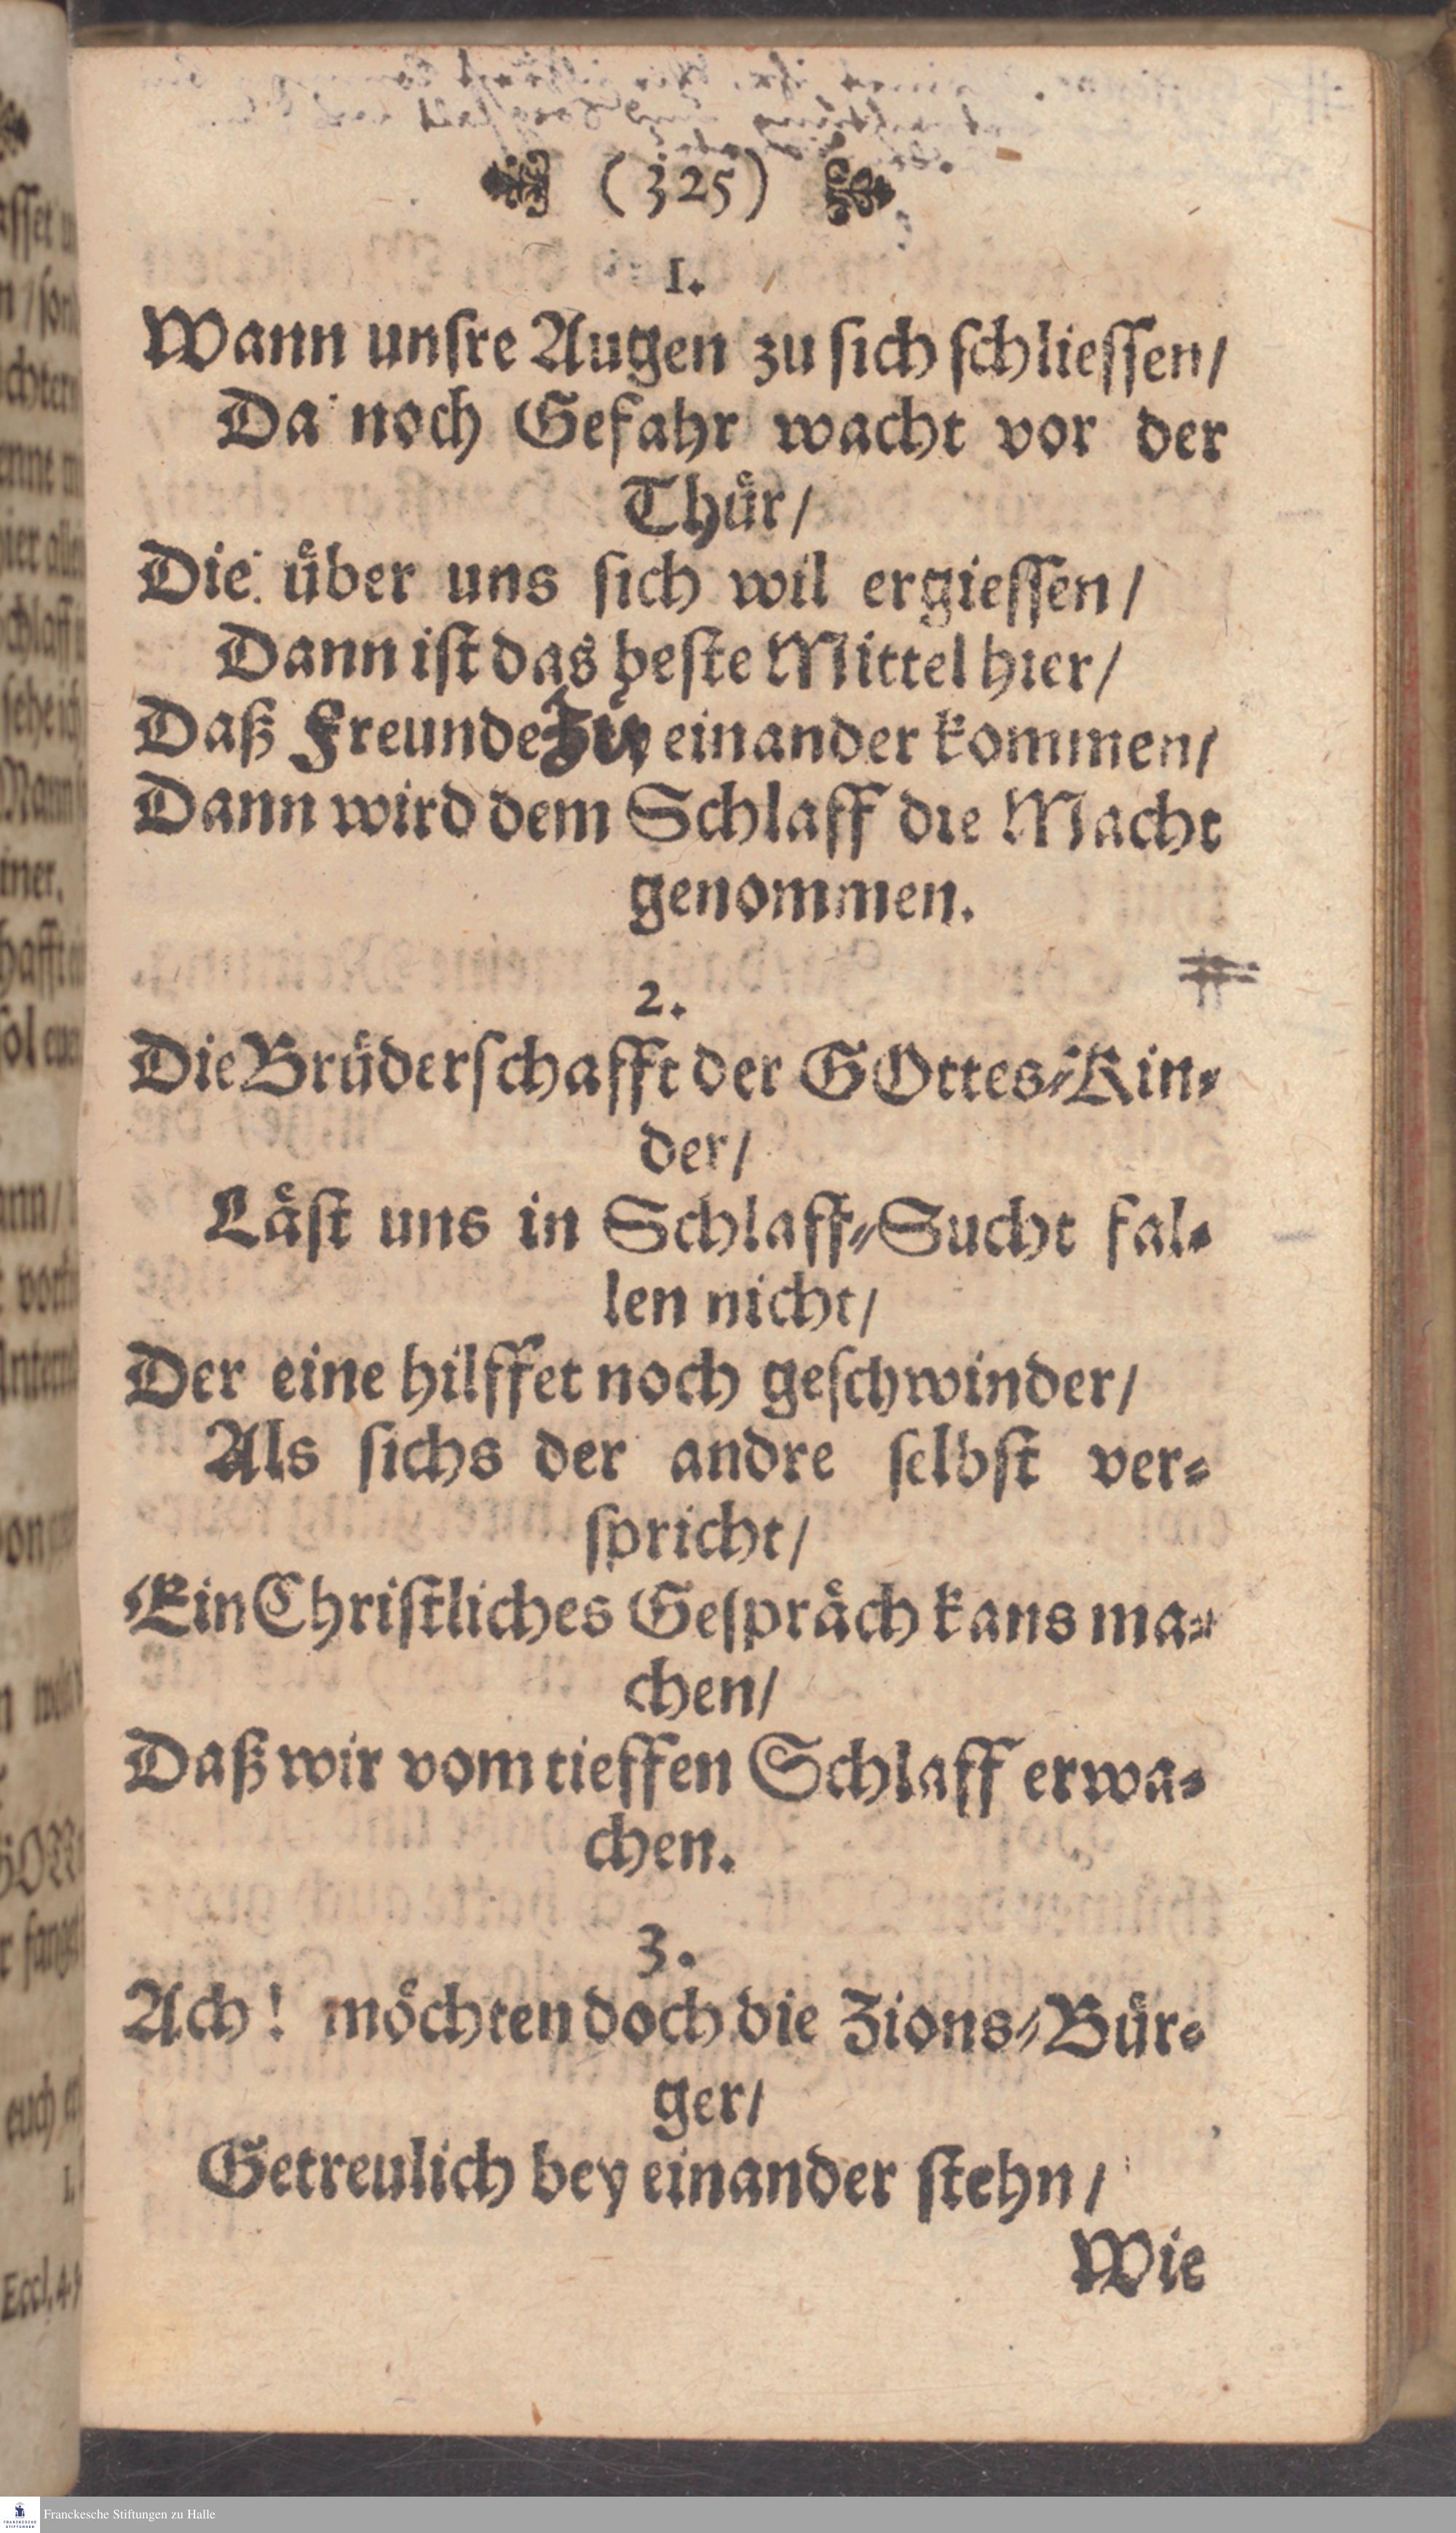 (325)
1.
Wann unſre Augen zu ſich ſchlieſſen/
Da noch Gefahr wacht vor der
Thuͤr/
Die uͤber uns ſich wil ergieſſen/
Dann iſt das beſte Mittel hier/
Daß Freunde zu einander kommen/
Dann wird dem Schlaff die Macht
genommen.
2.
Die Bruͤderſchafft der GOttes-Kin-
der/
Laͤſt uns in Schlaff-Sucht fal-
len nicht/
Der eine hilffet noch geſchwinder/
Als ſichs der andre ſelbſt ver-
ſpricht/
Ein Chriſtliches Geſpraͤch kans ma-
chen/
Daß wir vom tieffen Schlaff erwa-
chen.
3.
Ach! moͤchten doch die Zions-Buͤr-
ger/
Getreulich bey einander ſtehn/
Wie
Franckesche Stiftungen zu Halle